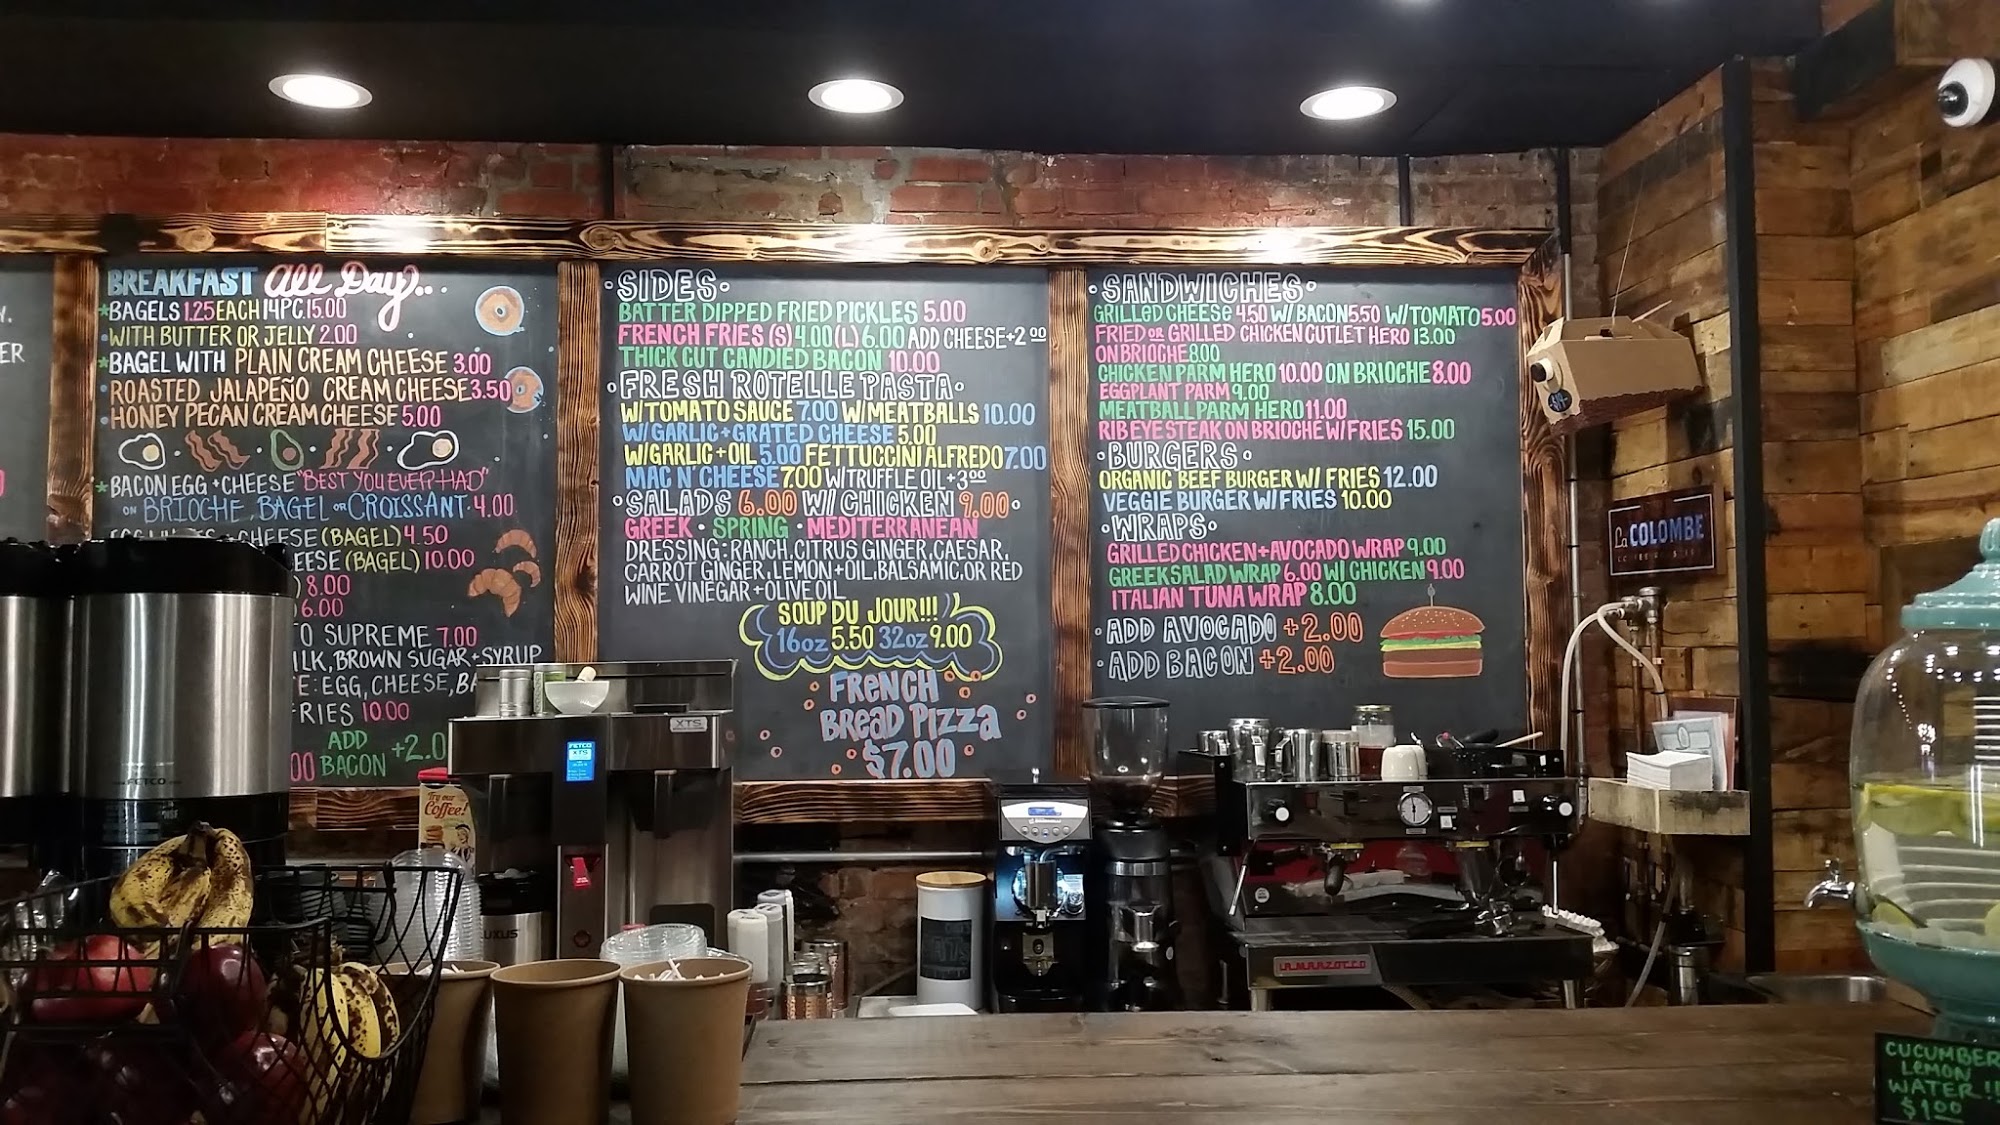 Y.
ER
BREAKFAST all Day...
*BAGELS 1.25 EACH 14PC. 15.00
•WITH BUTTER OR JELLY 2.00
*BAGEL WITH PLAIN CREAM CHEESE 3.00
•ROASTED JALAPEÑO CREAM CHEESE 3.50
•HONEY PECAN CREAM CHEESE 5.00
*BACON EGG + CHEESE "BEST YOU EVER HAD"
ON BRIOCHE, BAGEL OR CROISSANT • 4.00
CHEESE (BAGEL) 4.50
EESE (BAGEL) 10.00
) 8.00
) 6.00
TO SUPREME 7.00
ILK, BROWN SUGAR + SYRUP
E: EGG, CHEESE, BA
RIES 10.00
00 ADD BACON +2.0
•SIDES•
BATTER DIPPED FRIED PICKLES 5.00
FRENCH FRIES (S) 4.00 (L) 6.00 ADD CHEESE +2 00
THICK CUT CANDIED BACON 10.00
•FRESH ROTELLE PASTA•
W/TOMATO SAUCE 7.00 W/MEATBALLS 10.00
W/GARLIC + GRATED CHEESE 5.00
W/GARLIC + OIL 5.00 FETTUCCINI ALFREDO 7.00
MAC N' CHEESE 7.00 W/TRUFFLE OIL +3 00
•SALADS 6.00 W/ CHICKEN 9.00•
GREEK • SPRING • MEDITERRANEAN
DRESSING: RANCH, CITRUS GINGER, CAESAR,
CARROT GINGER, LEMON + OIL, BALSAMIC, OR RED
WINE VINEGAR + OLIVE OIL
SOUP DU JOUR!!!
16oz 5.50 32oz 9.00
FRENCH
BREAD PIZZA
$7.00
•SANDWICHES•
GRILLED CHEESE 4.50 W/ BACON 5.50 W/TOMATO 5.00
FRIED OR GRILLED CHICKEN CUTLET HERO 13.00
ON BRIOCHE 8.00
CHICKEN PARM HERO 10.00 ON BRIOCHE 8.00
EGGPLANT PARM 9.00
MEATBALL PARM HERO 11.00
RIBEYE STEAK ON BRIOCHE W/FRIES 15.00
•BURGERS•
ORGANIC BEEF BURGER W/ FRIES 12.00
VEGGIE BURGER W/FRIES 10.00
•WRAPS•
GRILLED CHICKEN + AVOCADO WRAP 9.00
GREEK SALAD WRAP 6.00 W/ CHICKEN 9.00
ITALIAN TUNA WRAP 8.00
•ADD AVOCADO +2.00
•ADD BACON +2.00
La COLOMBE
XTS
FETCO
XTS
FETCO
Try our
Coffee!
LUXUS
LA MARZOCCO
CUCUMBER
LEMON
WATER!!
$1 00